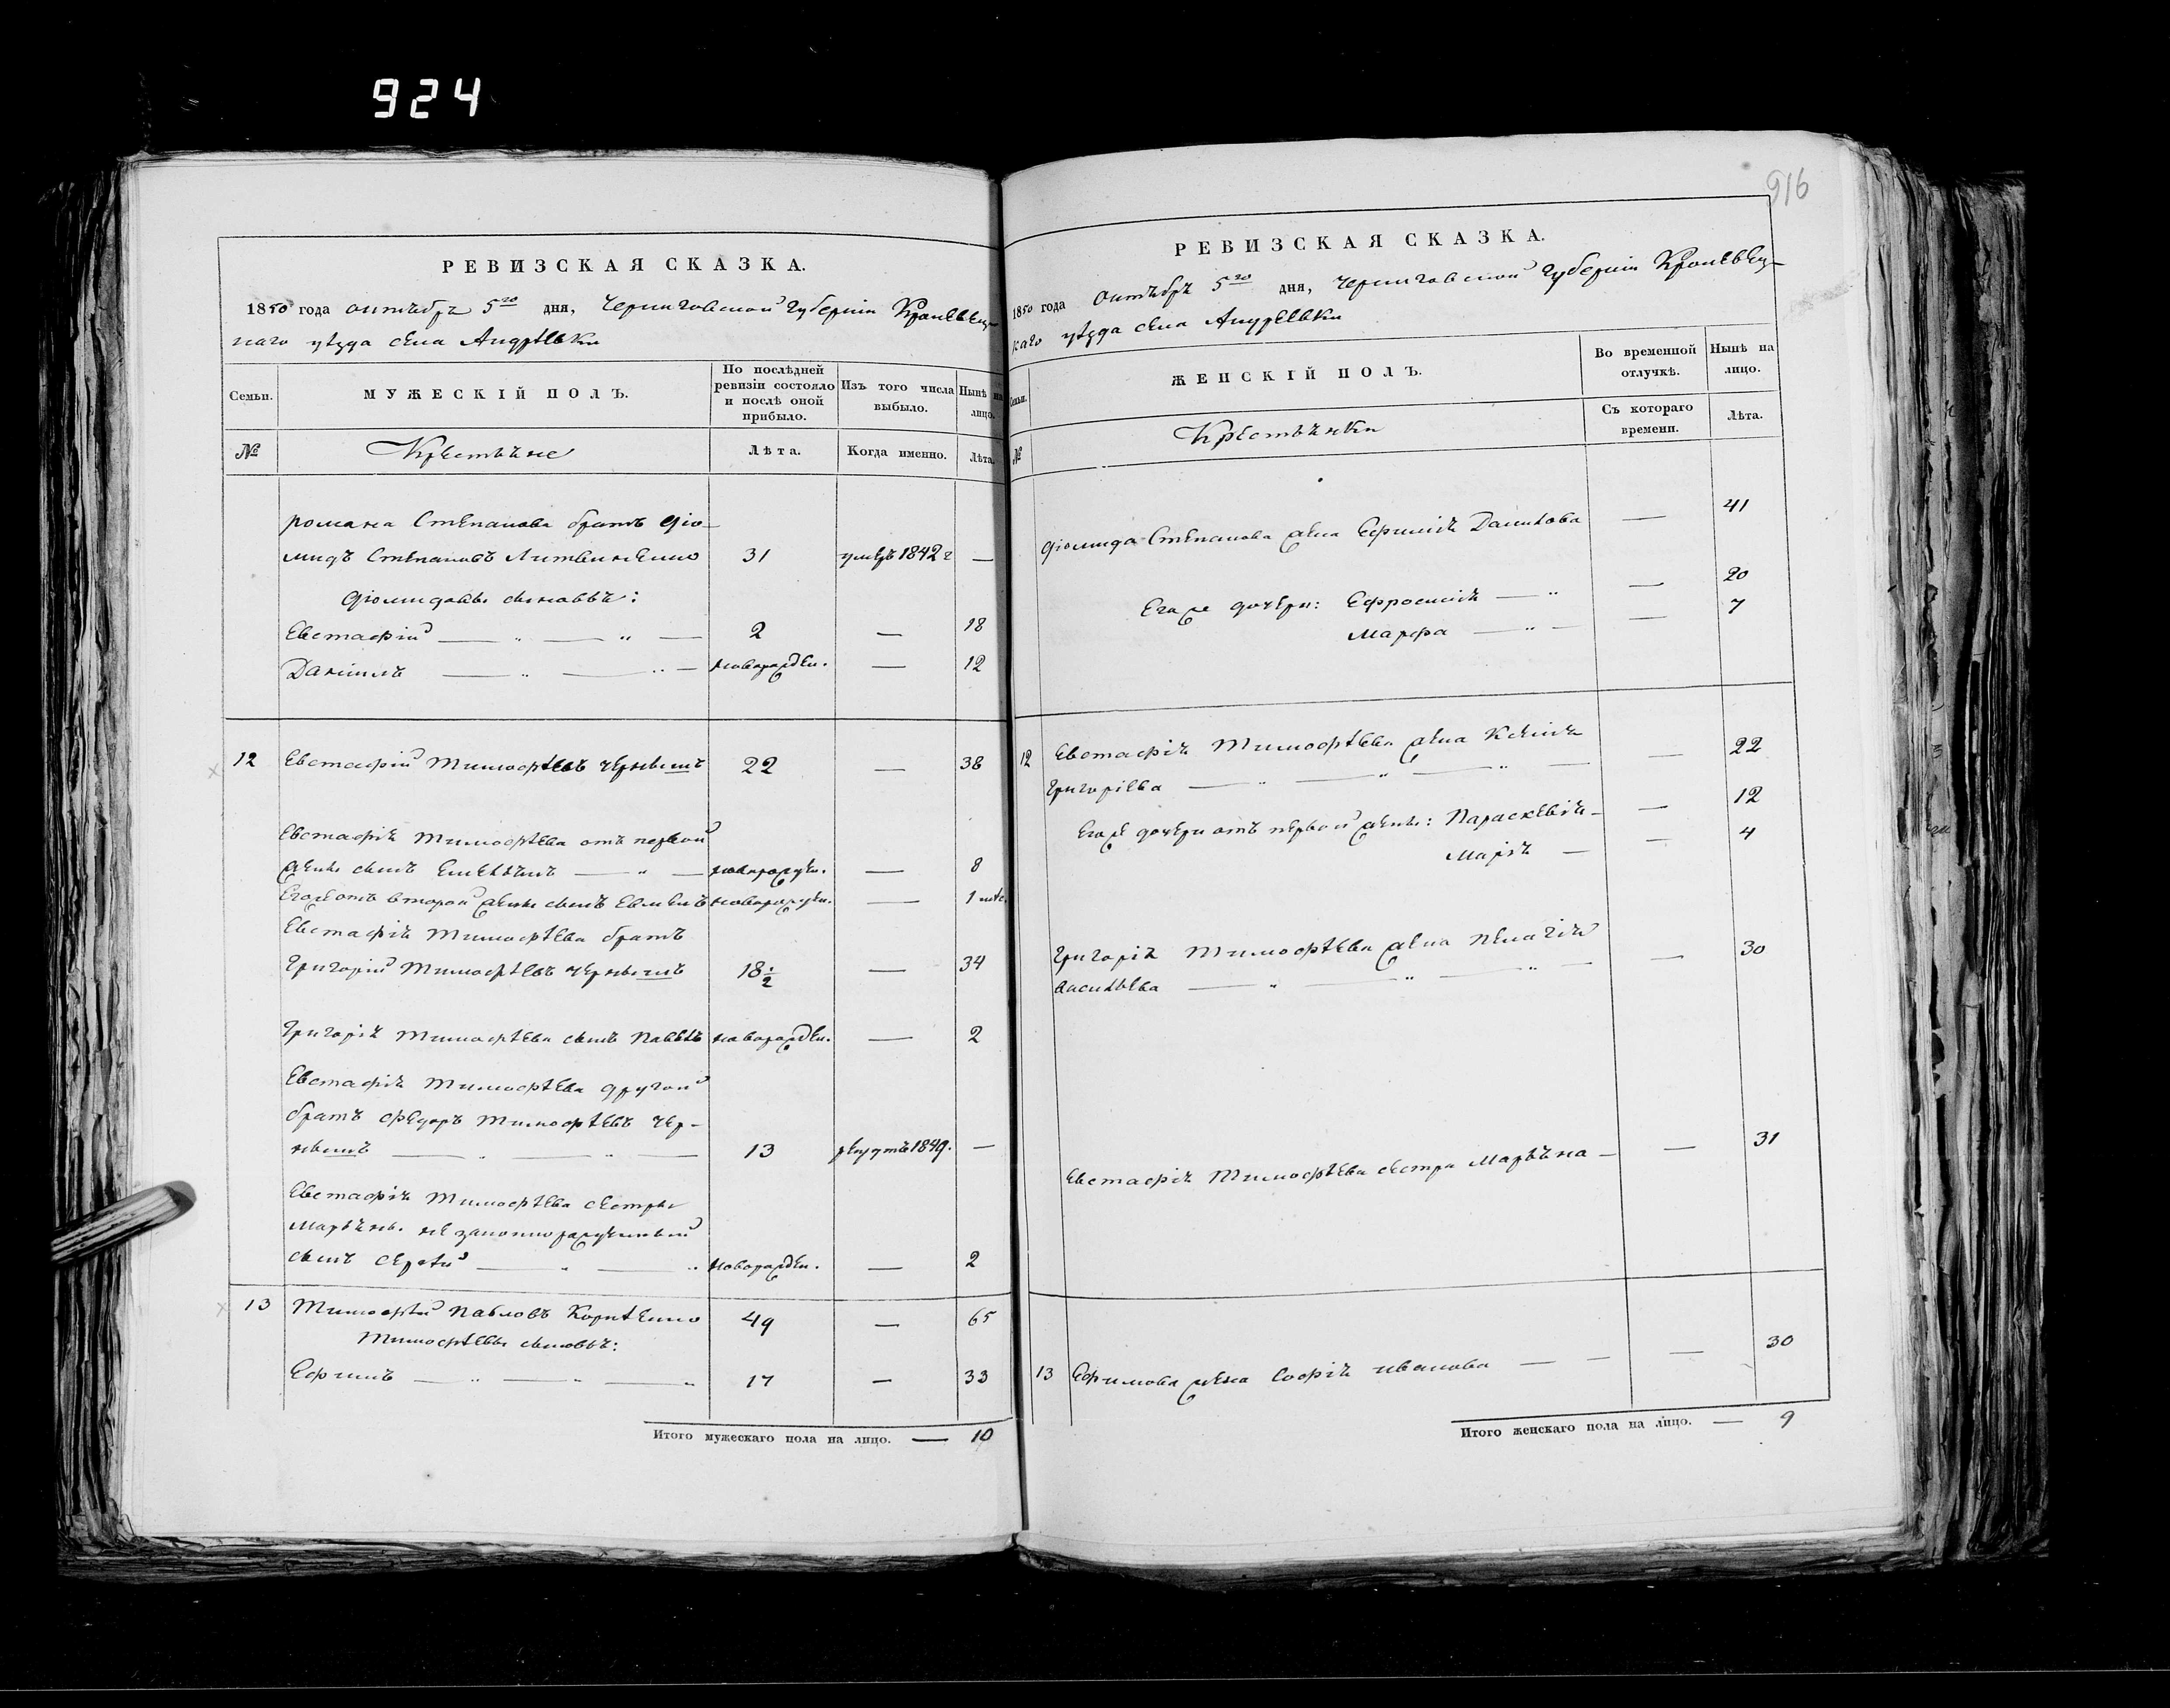 924
РЕВИЗСКАЯ СКАЗКА.
1850 года октября 5го дня, Черниговской губерніи Кролевец-
каго уѣзда села Андрѣевки
Семьи.
МУЖЕСКІЙ ПОЛЪ.
По послѣдней ревизіи состояло и послѣ оной прибыло.
Изъ того числа выбыло.
Нынѣ на лицо.
№
Крестьяне
Лѣта.
Когда именно.
Лѣта.
Романа Степанова братъ Діо-
мидъ Степановъ Литвиненко 31 умеръ 1842 г —
Діомидовы сыновья:
Евстафій — " — " — 2 — 18
Даніилъ — " — " — новорожден. — 12
12 Евстафій Тимофѣевъ Чернышъ 22 — 38
Евстафія Тимофѣева отъ первой
жены сынъ — " — новорожден. — 8
Егоже отъ второй жены сынъ новорожден. — 1 мѣс.
Евстафія Тимофѣева братъ
Григорій Тимофѣевъ Чернышъ 18 1/2 — 34
Григорія Тимофѣева сынъ Павелъ новорожден. — 2
Евстафія Тимофѣева другой
братъ Федоръ Тимофѣевъ Чер-
нышъ — " — " — 13 рекрутъ 1849. —
Евстафія Тимофѣева сестры
Марьяны незаконнорожденный
сынъ Сергѣй — " — " новорожден. — 2
13 Тимофѣй Павловъ Корнѣенко 49 — 65
Тимофѣевы сыновья:
Ефимъ — " — " — " 17 — 33
Итого мужескаго пола на лицо. — 10
916
РЕВИЗСКАЯ СКАЗКА.
1850 года Октября 5го дня, Черниговской губерніи Кролевец-
каго уѣзда села Андреевки
Семьи.
ЖЕНСКІЙ ПОЛЪ.
Во временной отлучкѣ.
Нынѣ на лицо.
№
Крестьянки
Съ котораго времени.
Лѣта.
Діомида Степанова жена Данилова — 41
Его же дочери: Ефросинія — " — 20
Марфа — " — — 7
12 Евстафія Тимофѣева жена Ксенія
Григоріева — " — " — " — — 22
Егоже дочери отъ первой жены: Параскевія — — 12
Марія — — 4
Григорія Тимофѣева жена Пелагія
Васильева — " — " — " — — 30
Евстафія Тимофѣева сестра Марьяна — — 31
13 Ефимова жена Софія Иванова — — — 30
Итого женскаго пола на лицо. — 9